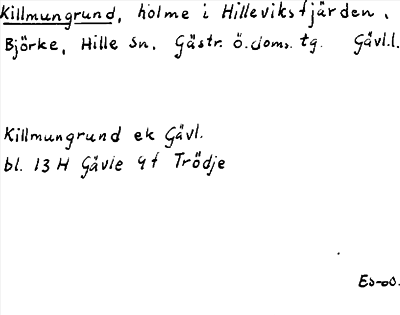 Killmungrund, holme i Hilleviksfjärden,
Björke, Hille sn, Gästr. Ö. doms. tg. Gävl.l.
Killmungrund ek Gävl.
bl. 13 H Gävle 9 f Trödje